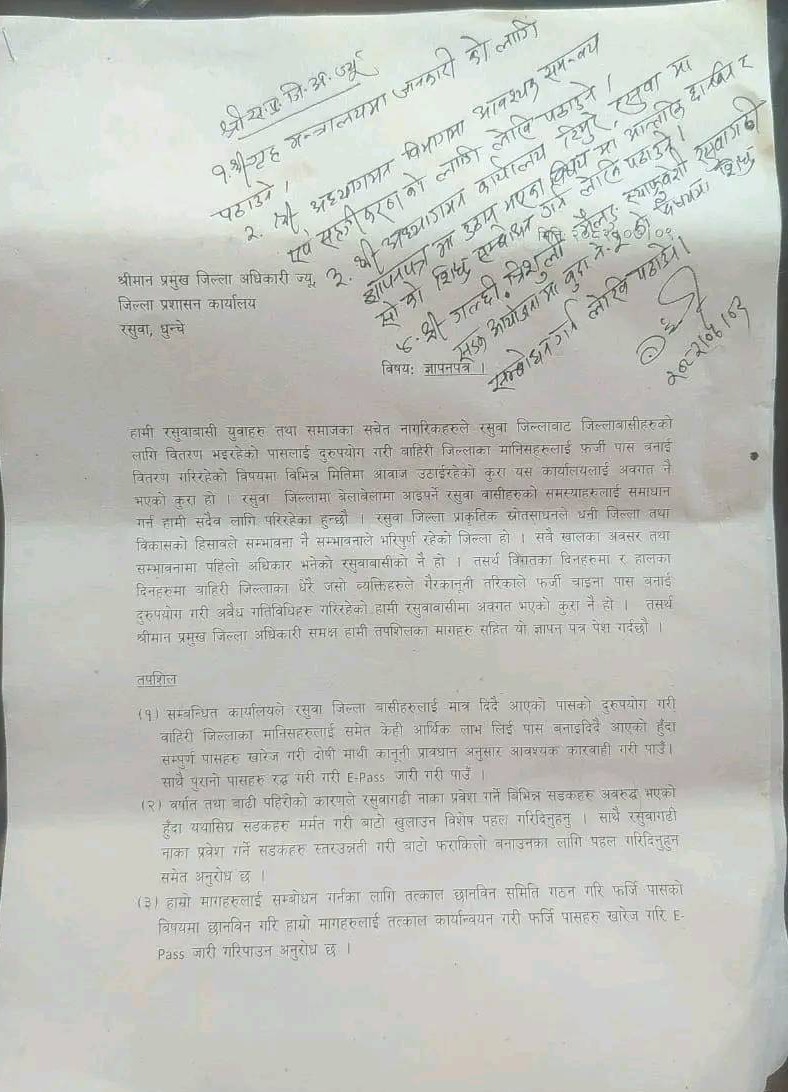 श्री स.प्र. जि. अ. ज्यू
१. श्री गृह मन्त्रालयमा जानकारी को लागि
पठाउने ।
२. श्री अध्यागमन विभागमा आवश्यक समन्वय
एवं सहजीकरण को लागि लेखि पठाउने ।
३. श्री अध्यागमन कार्यालय टिमुरे, रसुवा मा
ज्ञापनपत्र मा उठान भएका विषय मा आन्तरिक छानविन र
सो को शिघ्र सम्बोधन गर्न लेखि पठाउने ।
४. श्री गल्छी त्रिशुली मैलुङ स्याफ्रुवेशी रसुवागढी
सडक आयोजना मा बुदा नं. २ को विषयमा शिघ्र
सम्बोधन गर्न लेखि पठाउने ।
श्रीमान प्रमुख जिल्ला अधिकारी ज्यू,
जिल्ला प्रशासन कार्यालय
रसुवा, धुन्चे
विषय: ज्ञापनपत्र ।
हामी रसुवाबासी युवाहरु तथा समाजका सचेत नागरिकहरुले रसुवा जिल्लावाट जिल्लाबासीहरुको
लागि वितरण भइरहेको पासलाई दुरुपयोग गरी वाहिरी जिल्लाका मानिसहरुलाई फर्जी पास बनाई
वितरण गरिरहेको विषयमा विभिन्न मितिमा आवाज उठाईरहेको कुरा यस कार्यालयलाई अवगत नै
भएको कुरा हो । रसुवा जिल्लामा बेलाबेलामा आइपर्ने रसुवा वासीहरुको समस्याहरुलाई समाधान
गर्न हामी सदैव लागि परिरहेका हुन्छौ । रसुवा जिल्ला प्राकृतिक स्रोतसाधनले धनी जिल्ला तथा
विकासको हिसावले सम्भावना नै सम्भावनाले भरिपुर्ण रहेको जिल्ला हो । सवै खालका अवसर तथा
सम्भावनामा पहिलो अधिकार भनेको रसुवाबासीको नै हो । तसर्थ विगतका दिनहरुमा र हालका
दिनहरुमा वाहिरी जिल्लाका धेरै जसो व्यक्तिहरुले गैरकानूनी तरिकाले फर्जी चाइना पास बनाई
दुरुपयोग गरी अवैध गतिविधिहरु गरिरहेको हामी रसुवाबासीमा अवगत भएको कुरा नै हो । तसर्थ
श्रीमान प्रमुख जिल्ला अधिकारी समक्ष हामी तपशिलका मागहरु सहित यो ज्ञापन पत्र पेश गर्दछौ ।
तपशिल
(१) सम्बन्धित कार्यालयले रसुवा जिल्ला बासीहरुलाई मात्र दिदै आएको पासको दुरुपयोग गरी
वाहिरी जिल्लाका मानिसहरुलाई समेत केही आर्थिक लाभ लिई पास बनाइदिदै आएको हुँदा
सम्पुर्ण पासहरु खारेज गरी दोषी माथी कानूनी प्रावधान अनुसार आवश्यक कारवाही गरी पाउँ।
साथै पुरानो पासहरु रद्ध गरी गरी E-Pass जारी गरी पाउँ ।
(२) वर्षात तथा बाढी पहिरोको कारणले रसुवागढी नाका प्रवेश गर्ने बिभिन्न सडकहरु अवरुद्ध भएको
हुँदा यथासिघ्र सडकहरु मर्मत गरी बाटो खुलाउन विशेष पहल गरिदिनुहुन । साथै रसुवागढी
नाका प्रवेश गर्ने सडकहरु स्तरउन्नती गरी बाटो फराकिलो बनाउनका लागि पहल गरिदिनुहुन
समेत अनुरोध छ ।
(३) हाम्रो मागहरुलाई सम्बोधन गर्नका लागि तत्काल छानविन समिति गठन गरि फर्जि पासको
विषयमा छानविन गरि हाम्रो मागहरुलाई तत्काल कार्यान्वयन गरी फर्जि पासहरु खारेज गरि E-
Pass जारी गरिपाउन अनुरोध छ ।